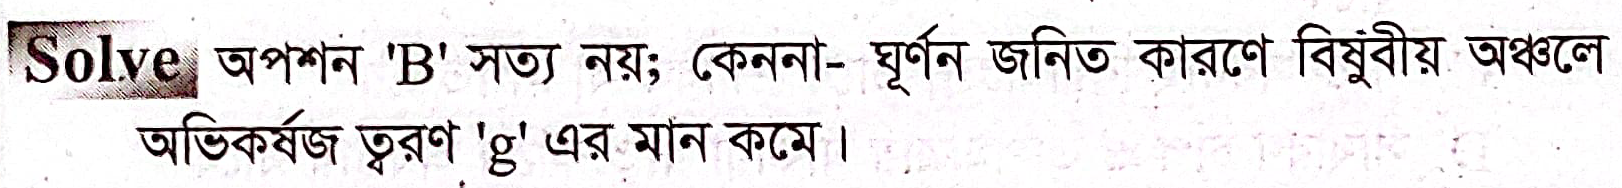 Solve অপশন 'B' সত্য নয়; কেননা- ঘূর্ণন জনিত কারণে বিষুবীয় অঞ্চলে
অভিকর্ষজ ত্বরণ 'g' এর মান কমে।